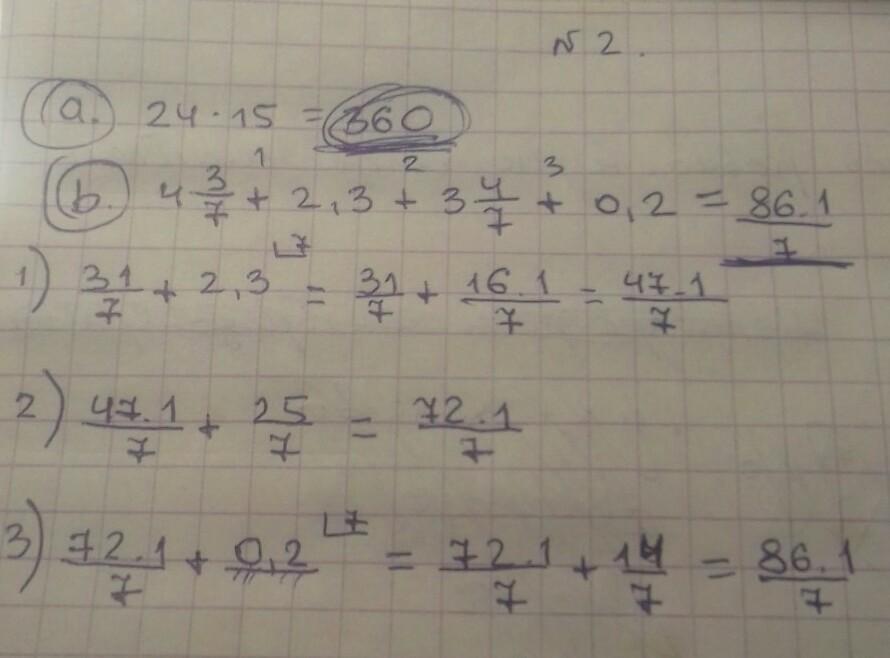 N 2.
a. 24 · 15 = 360
1 2 3
b. 4 3/7 + 2,3 + 3 4/7 + 0,2 = 86.1/7
1) 31/7 + 2,3 ⌊7 = 31/7 + 16.1/7 = 47.1/7
2) 47.1/7 + 25/7 = 72.1/7
3) 72.1/7 + 0,2 ⌊7 = 72.1/7 + 14/7 = 86.1/7